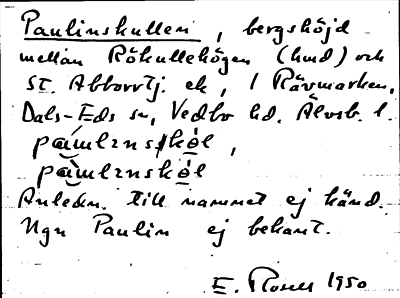 Paulinskullen, bergshöjd
mellan Rökullehögen (hmd) och
St. Abborrtj. ek, i Rävmarken,
Dals-Eds sn, Vedbo hd. Älvsb. l.
Anledn. till namnet ej känd.
Ngn Paulin ej bekant.
E. 1950